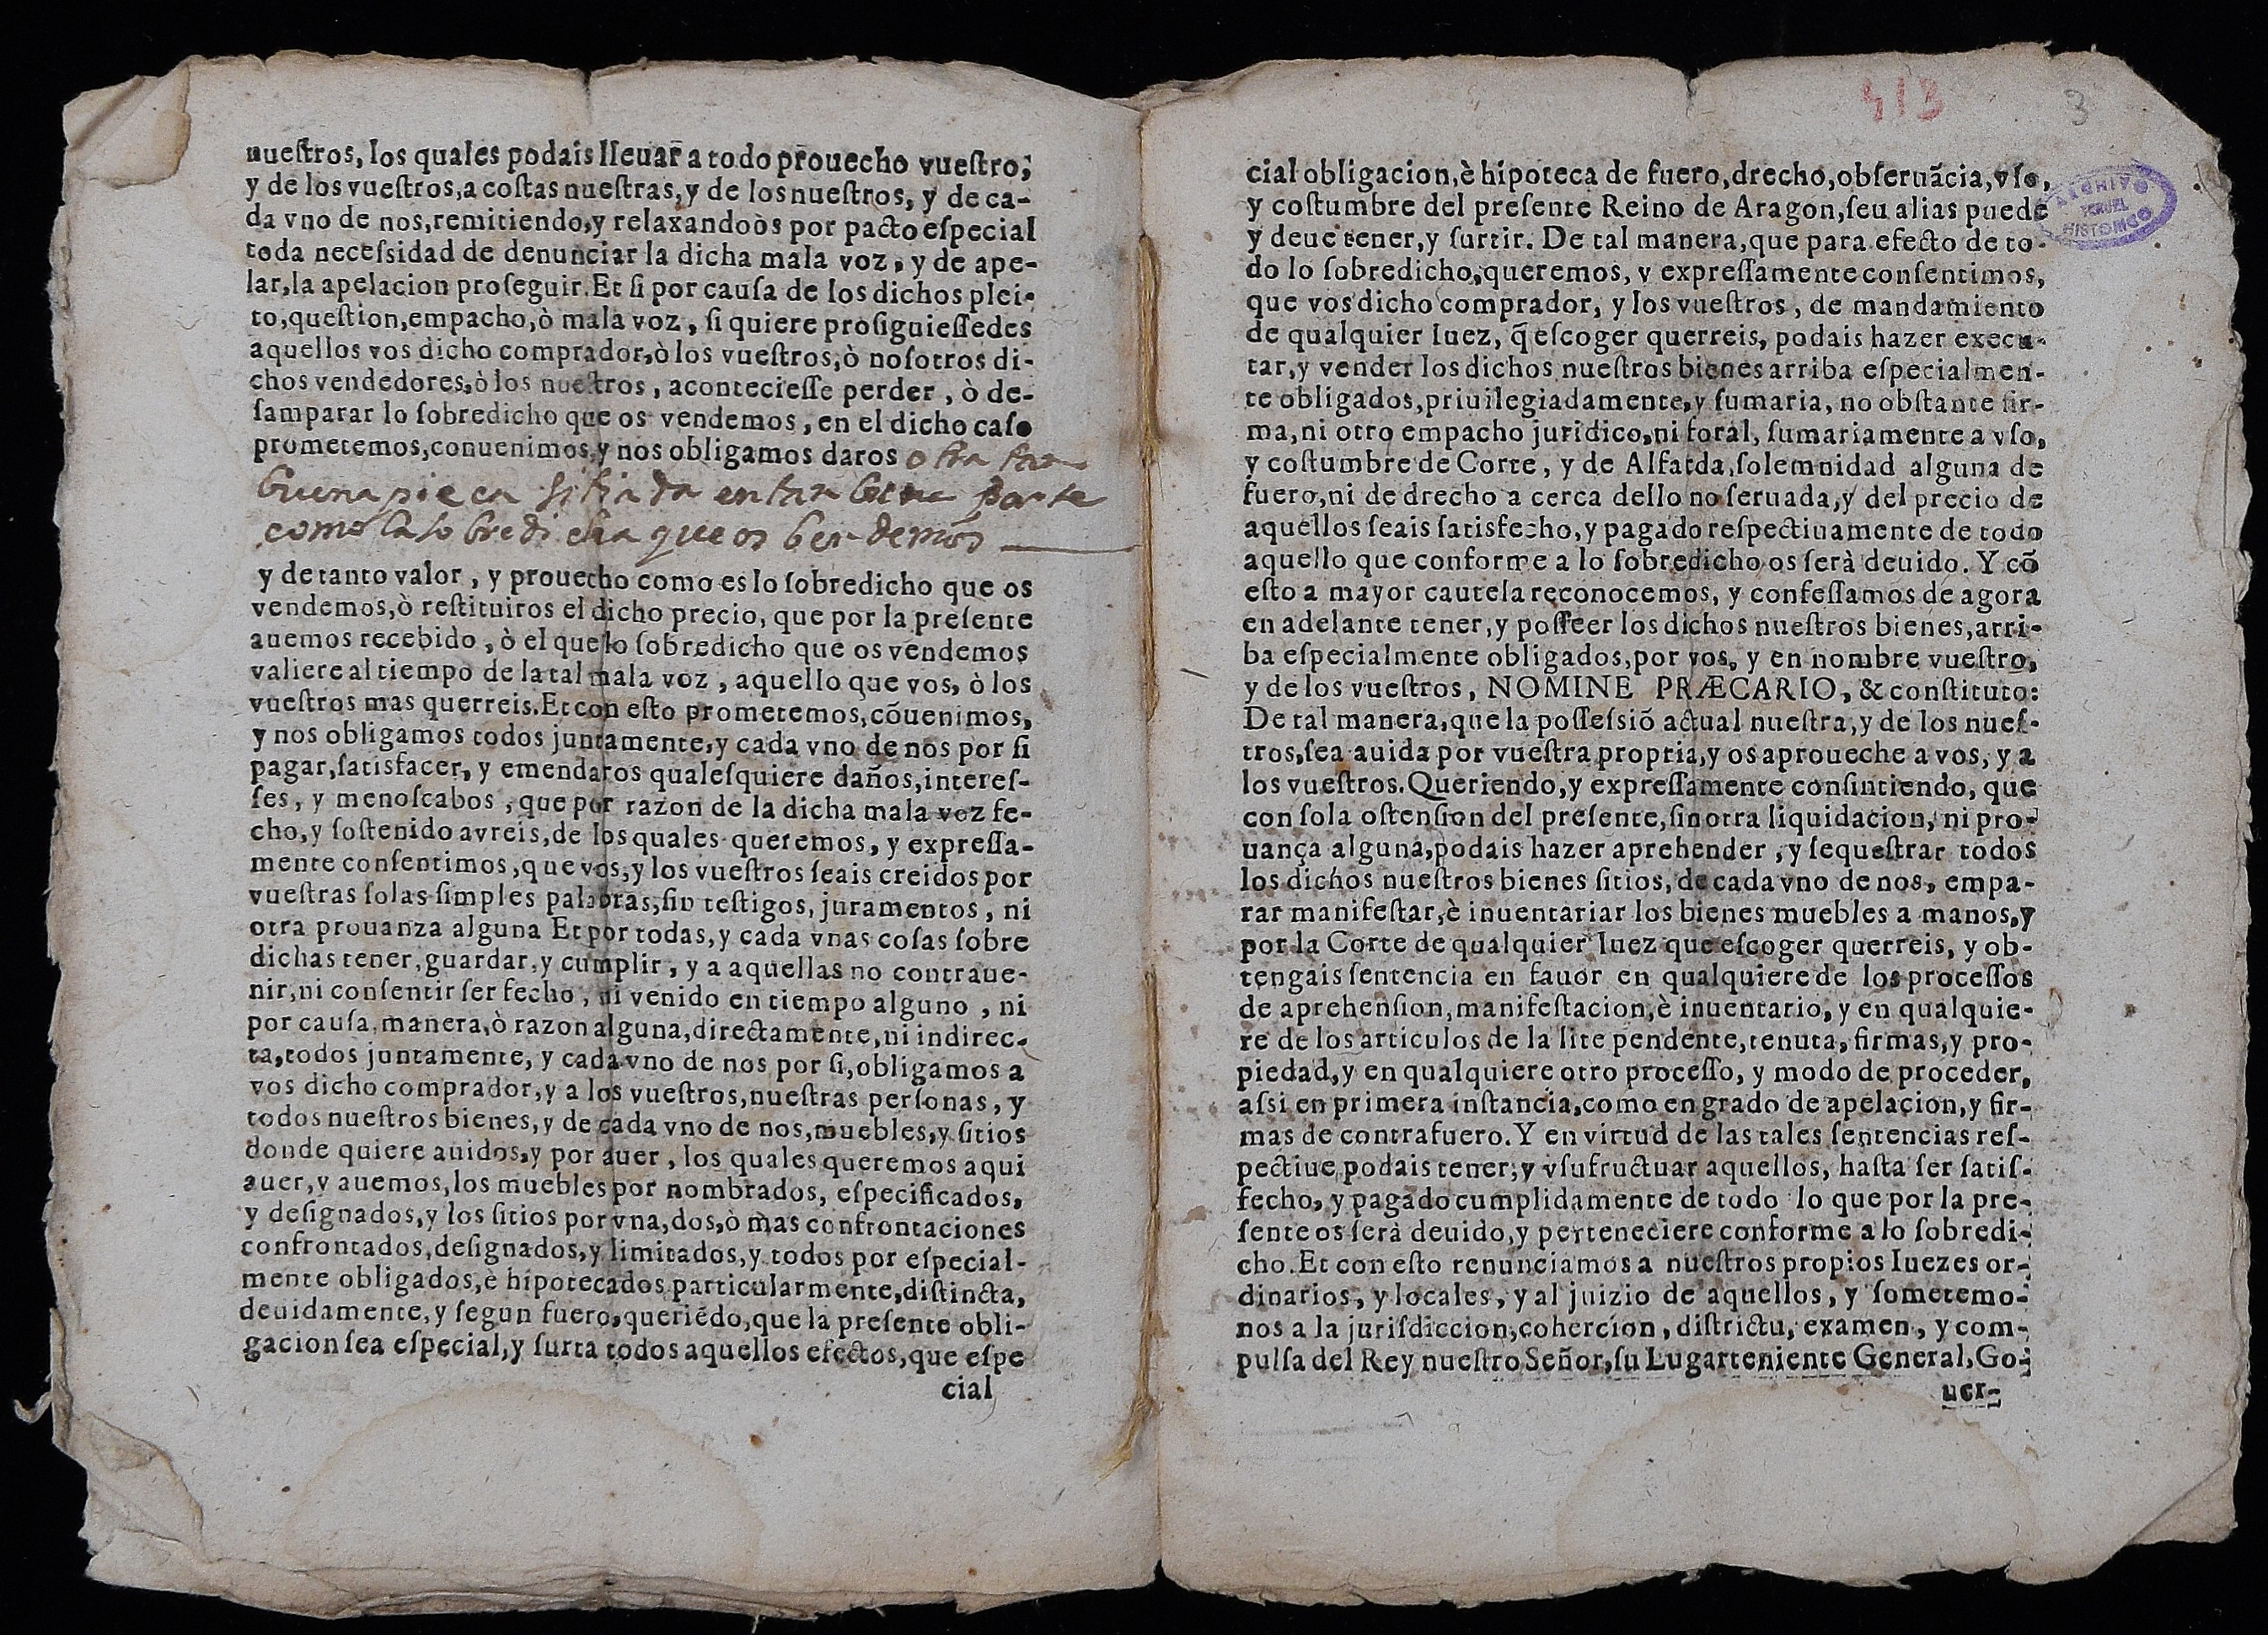 nueſtros, los quales podais lleuar a todo prouecho vueſtro;
y de los vueſtros, a coſtas nueſtras, y de los nueſtros, y de ca-
da vno de nos, remitiendo, y relaxandoòs por pacto eſpecial
toda neceſsidad de denunciar la dicha mala voz, y de ape-
lar, la apelacion proſeguir. Et ſi por cauſa de los dichos plei-
to, queſtion, empacho, ò mala voz, ſi quiere proſiguieſſedes
aquellos vos dicho comprador, ò los vueſtros, ò noſotros di-
chos vendedores, ò los nueſtros, acontecieſſe perder, ò de-
ſamparar lo ſobredicho que os vendemos, en el dicho caſo
prometemos, conuenimos, y nos obligamos daros otra tan
buena pieca sitiada en tan buena parte
como la sobredicha que os bendemos
y de tanto valor, y prouecho como es lo ſobredicho que os
vendemos, ò reſtituiros el dicho precio, que por la preſente
auemos recebido, ò el que lo ſobredicho que os vendemos
valiere al tiempo de la tal mala voz, aquello que vos, ò los
vueſtros mas querreis. Et con eſto prometemos, cõuenimos,
y nos obligamos todos juntamente, y cada vno de nos por ſi
pagar, ſatisfacer, y emendaros qualeſquiere daños, intereſ-
ſes, y menoſcabos, que por razon de la dicha mala voz fe-
cho, y ſoſtenido avreis, de los quales queremos, y expreſſa-
mente conſentimos, que vos, y los vueſtros ſeais creidos por
vueſtras ſolas ſimples palabras, ſin teſtigos, juramentos, ni
otra prouanza alguna Et por todas, y cada vnas coſas ſobre
dichas tener, guardar, y cumplir, y a aquellas no contraue-
nir, ni conſentir ſer fecho, ni venido en tiempo alguno, ni
por cauſa, manera, ò razon alguna, directamente, ni indirec-
ta, todos juntamente, y cada vno de nos por ſi, obligamos a
vos dicho comprador, y a los vueſtros, nueſtras perſonas, y
todos nueſtros bienes, y de cada vno de nos, muebles, y ſitios
donde quiere auidos, y por auer, los quales queremos aqui
auer, y auemos, los muebles por nombrados, eſpecificados,
y deſignados, y los ſitios por vna, dos, ò mas confrontaciones
confrontados, deſignados, y limitados, y todos por eſpecial-
mente obligados, è hipotecados particularmente, diſtincta,
deuidamente, y ſegun fuero, queriẽdo, que la preſente obli-
gacion ſea eſpecial, y ſurta todos aquellos efectos, que eſpe
cial
413
3
ARCHIVO
TERUEL
HISTORICO
cial obligacion, è hipoteca de fuero, drecho, obſeruãcia, vſo,
y coſtumbre del preſente Reino de Aragon, ſeu alias puede
y deue tener, y ſurtir. De tal manera, que para efecto de to-
do lo ſobredicho, queremos, y expreſſamente conſentimos,
que vos dicho comprador, y los vueſtros, de mandamiento
de qualquier Iuez, q̃ eſcoger querreis, podais hazer execu-
tar, y vender los dichos nueſtros bienes arriba eſpecialmen-
te obligados, priuilegiadamente, y ſumaria, no obſtante fir-
ma, ni otro empacho juridico, ni foral, ſumariamente a vſo,
y coſtumbre de Corte, y de Alfarda, ſolemnidad alguna de
fuero, ni de drecho a cerca dello no ſeruada, y del precio de
aquellos ſeais ſatisfecho, y pagado reſpectiuamente de todo
aquello que conforme a lo ſobredicho os ſerà deuido. Y cõ
eſto a mayor cautela reconocemos, y confeſſamos de agora
en adelante tener, y poſſeer los dichos nueſtros bienes, arri-
ba eſpecialmente obligados, por vos, y en nombre vueſtro,
y de los vueſtros, NOMINE PRÆCARIO, & conſtituto:
De tal manera, que la poſſeſsiõ actual nueſtra, y de los nueſ-
tros, ſea auida por vueſtra propria, y os aproueche a vos, y a
los vueſtros. Queriendo, y expreſſamente conſintiendo, que
con ſola oſtenſion del preſente, ſin otra liquidacion, ni pro-
uança alguna, podais hazer aprehender, y ſequeſtrar todos
los dichos nueſtros bienes ſitios, de cada vno de nos, empa-
rar manifeſtar, è inuentariar los bienes muebles a manos, y
por la Corte de qualquier Iuez que eſcoger querreis, y ob-
tengais ſentencia en fauor en qualquiere de los proceſſos
de aprehenſion, manifeſtacion, è inuentario, y en qualquie-
re de los articulos de la lite pendente, tenuta, firmas, y pro-
piedad, y en qualquiere otro proceſſo, y modo de proceder,
aſsi en primera inſtancia, como en grado de apelacion, y fir-
mas de contrafuero. Y en virtud de las tales ſentencias reſ-
pectiue, podais tener, y vſufructuar aquellos, haſta ſer ſatiſ-
fecho, y pagado cumplidamente de todo lo que por la pre-
ſente os ſerà deuido, y perteneciere conforme a lo ſobredi-
cho. Et con eſto renunciamos a nueſtros propios Iuezes or-
dinarios, y locales, y al juizio de aquellos, y ſometemo-
nos a la juriſdiccion, cohercion, diſtrictu, examen, y com-
pulſa del Rey nueſtro Señor, ſu Lugarteniente General, Go-
uer-